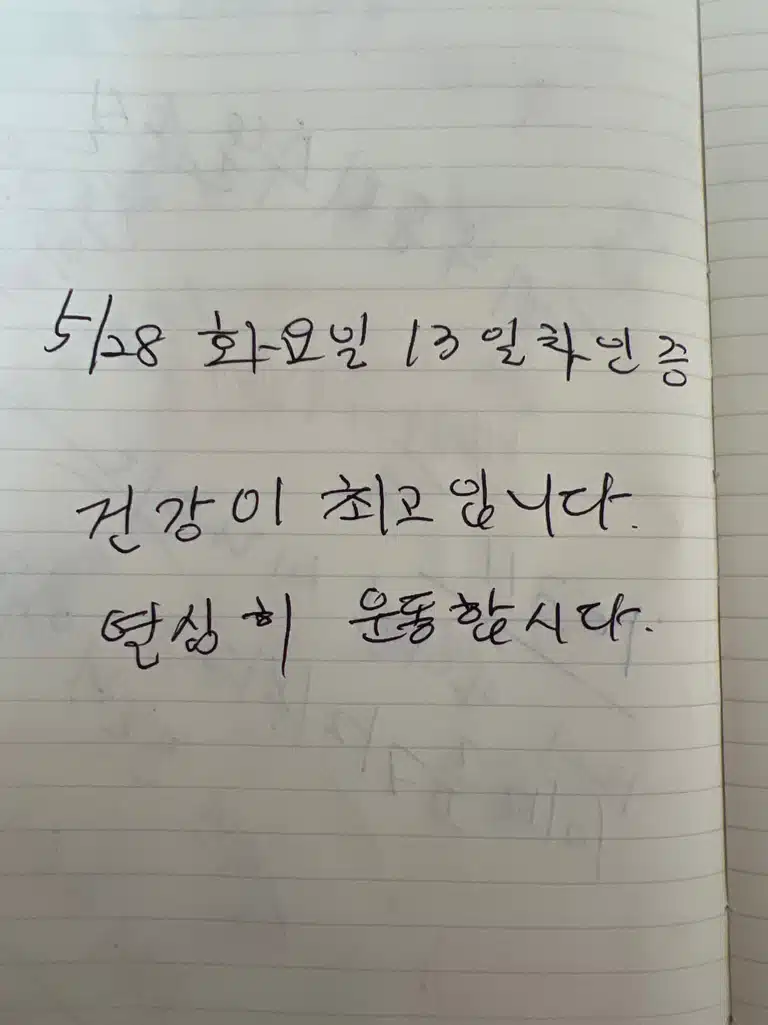 5/28 화요일 13일차 인증
건강이 최고입니다.
열심히 운동합시다.